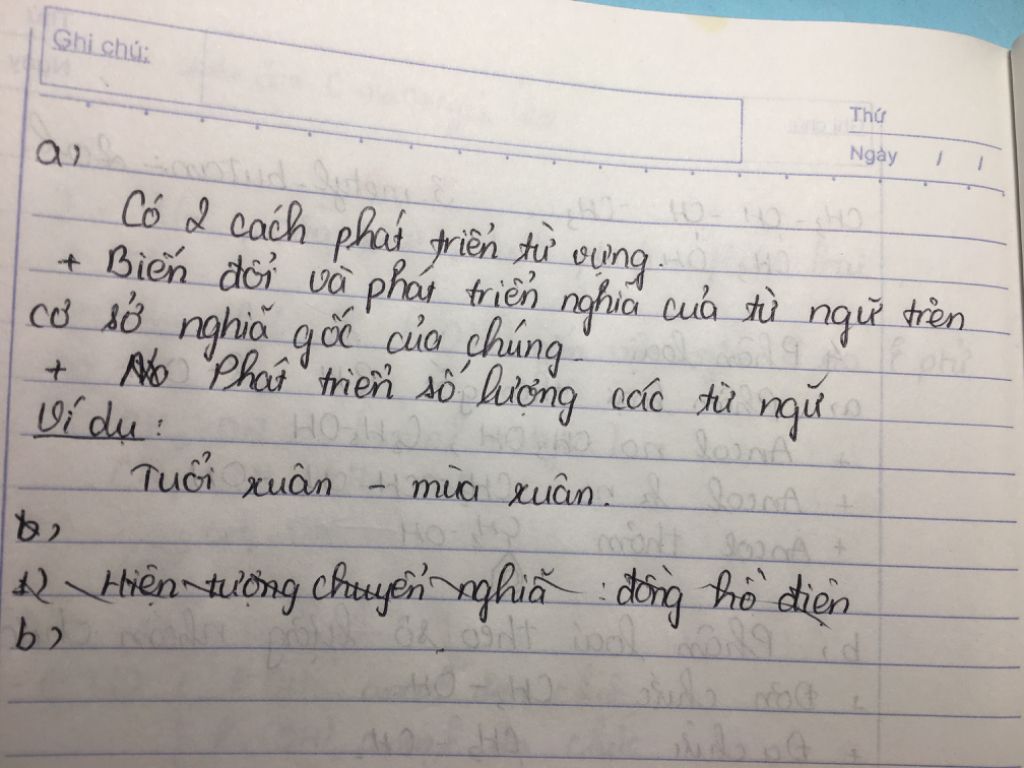 Ghi chú:
Thứ
Ngày / /
a,
Có 2 cách phát triển từ vựng.
+ Biến đổi và phát triển nghĩa của từ ngữ trên
cơ sở nghĩa gốc của chúng.
+ Phát triển số lượng các từ ngữ
Ví dụ:
Tuổi xuân – mùa xuân.
b,
Hiện tượng chuyển nghĩa : đồng hồ điện
b,